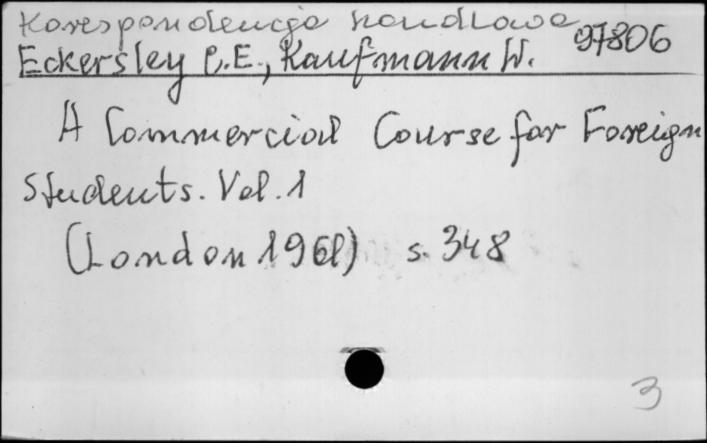 Korespondencja handlowa
97806
Eckersley C.E., Kaufmann W.
A Commercial Course for Foreign
Students. Vol. 1
(London 1961) s. 348
3